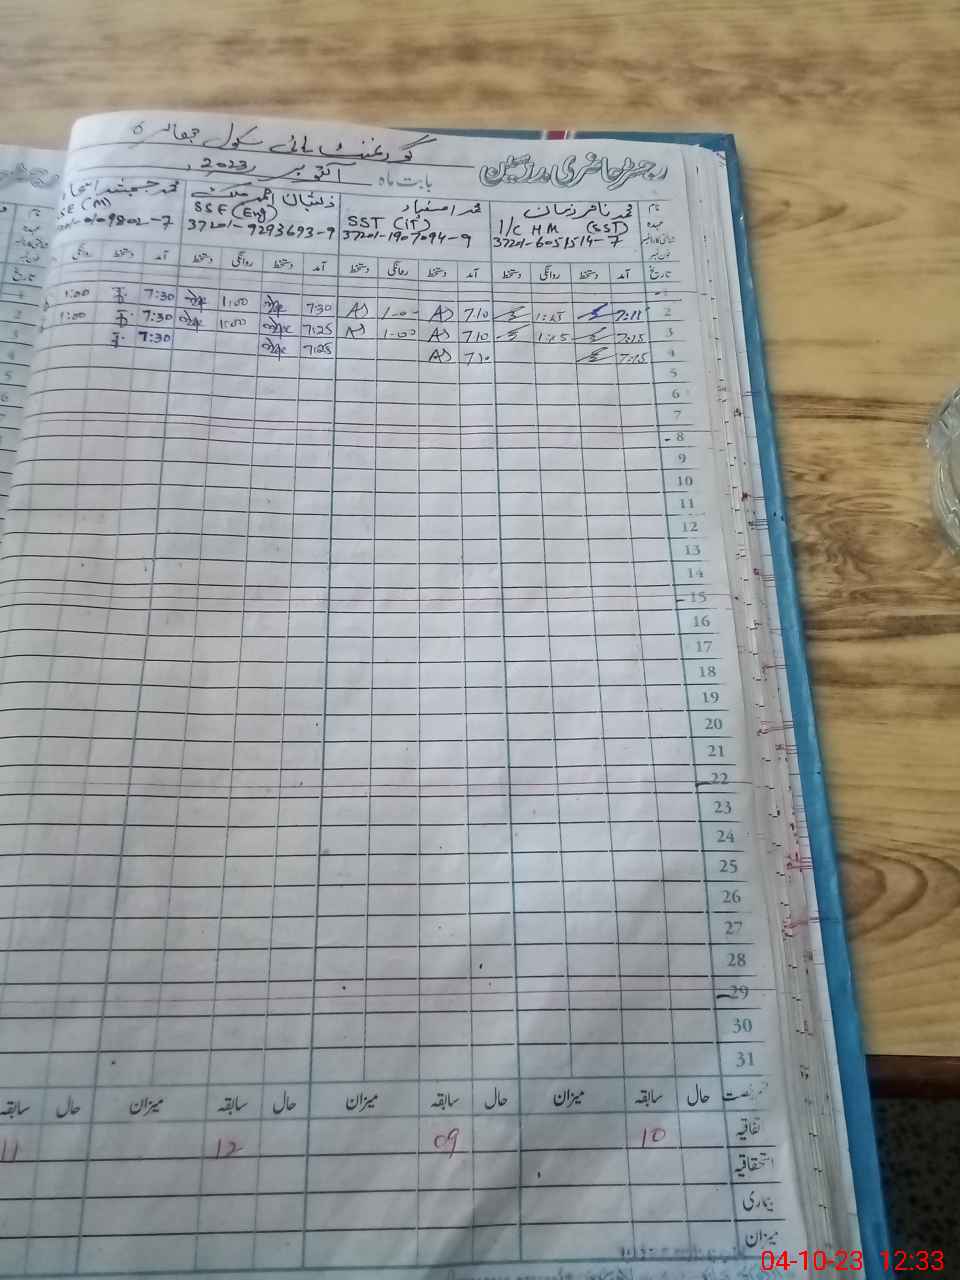 رجسٹر حاضری مدرسین
گورنمنٹ ہائی سکول
بابت ماہ اکتوبر 2023ء
نام محمد ناصر زمان محمد اسفند ذیشان احمد ملک محمد جمشید
عہدہ I/C HM (SST) SST (IT) SSE (Eng) SSE (M)
37201-6051514-7 37201-1907094-9 37201-9293693-9 9802-7
تاریخ آمد دستخط روانگی دستخط آمد دستخط روانگی دستخط آمد دستخط روانگی دستخط آمد دستخط روانگی
1
2 7:15 1:15 7:10 1-00 7:30 1:00 7:30 1:00
3 7:15 1:15 7:10 1-00 7:25 1:00 7:30 1:00
4 7:15 7:10 7:25 7:30
5
6
7
8
9
10
11
12
13
14
15
16
17
18
19
20
21
22
23
24
25
26
27
28
29
30
31
رخصت حال سابقہ میزان حال سابقہ میزان حال سابقہ میزان حال سابقہ
اتفاقیہ 10 09 12 11
استحقاقیہ
بیماری
میزان
04-10-23 12:33